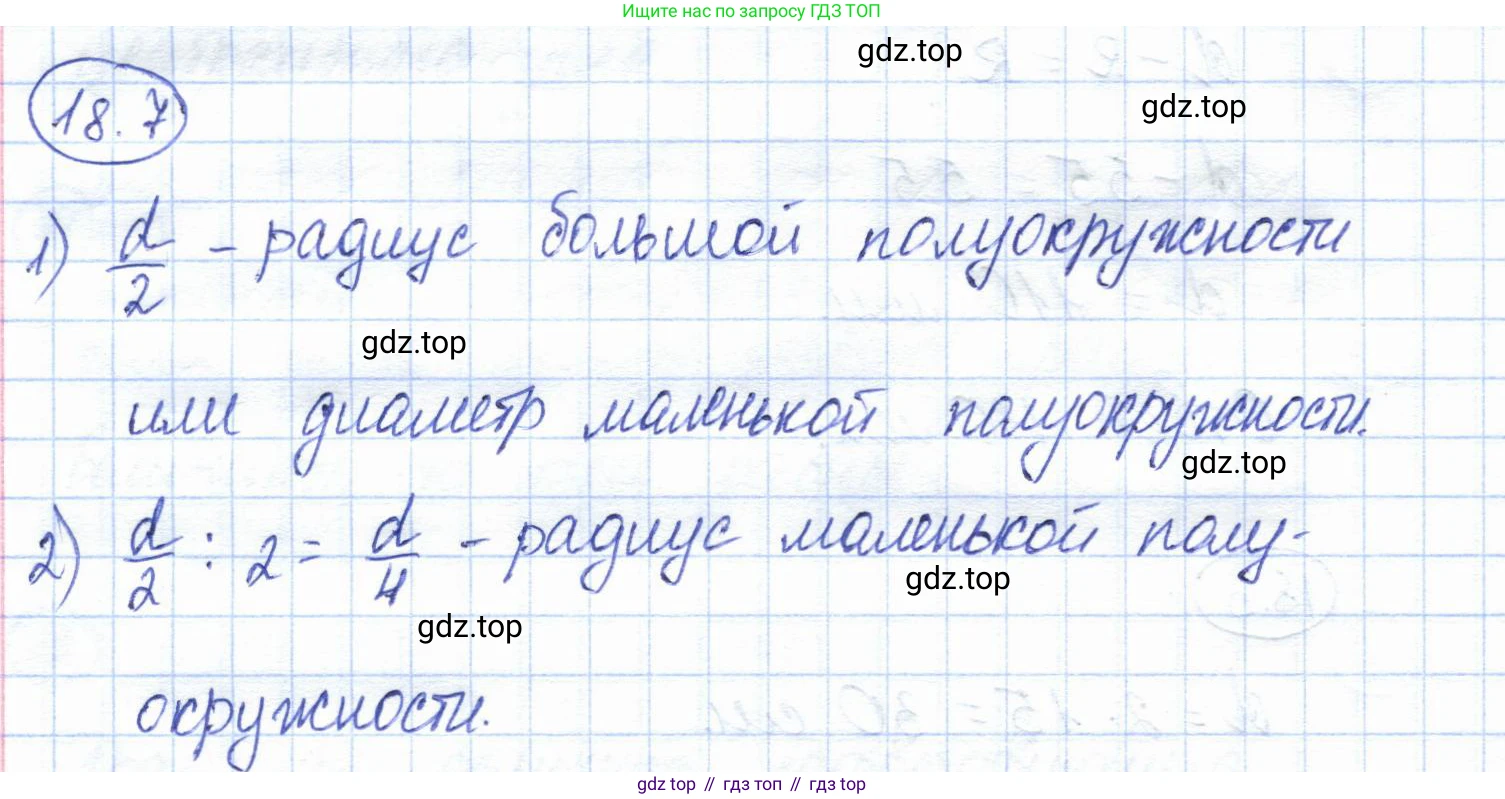 Ищите нас по запросу ГДЗ ТОП
gdz.top
gdz.top
18.7
1) d/2 - радиус большой полуокружности
gdz.top
или диаметр маленькой полуокружности.
gdz.top
2) d/2 : 2 = d/4 - радиус маленькой полу-
gdz.top
gdz.top
окружности.
gdz top // гдз топ // gdz top